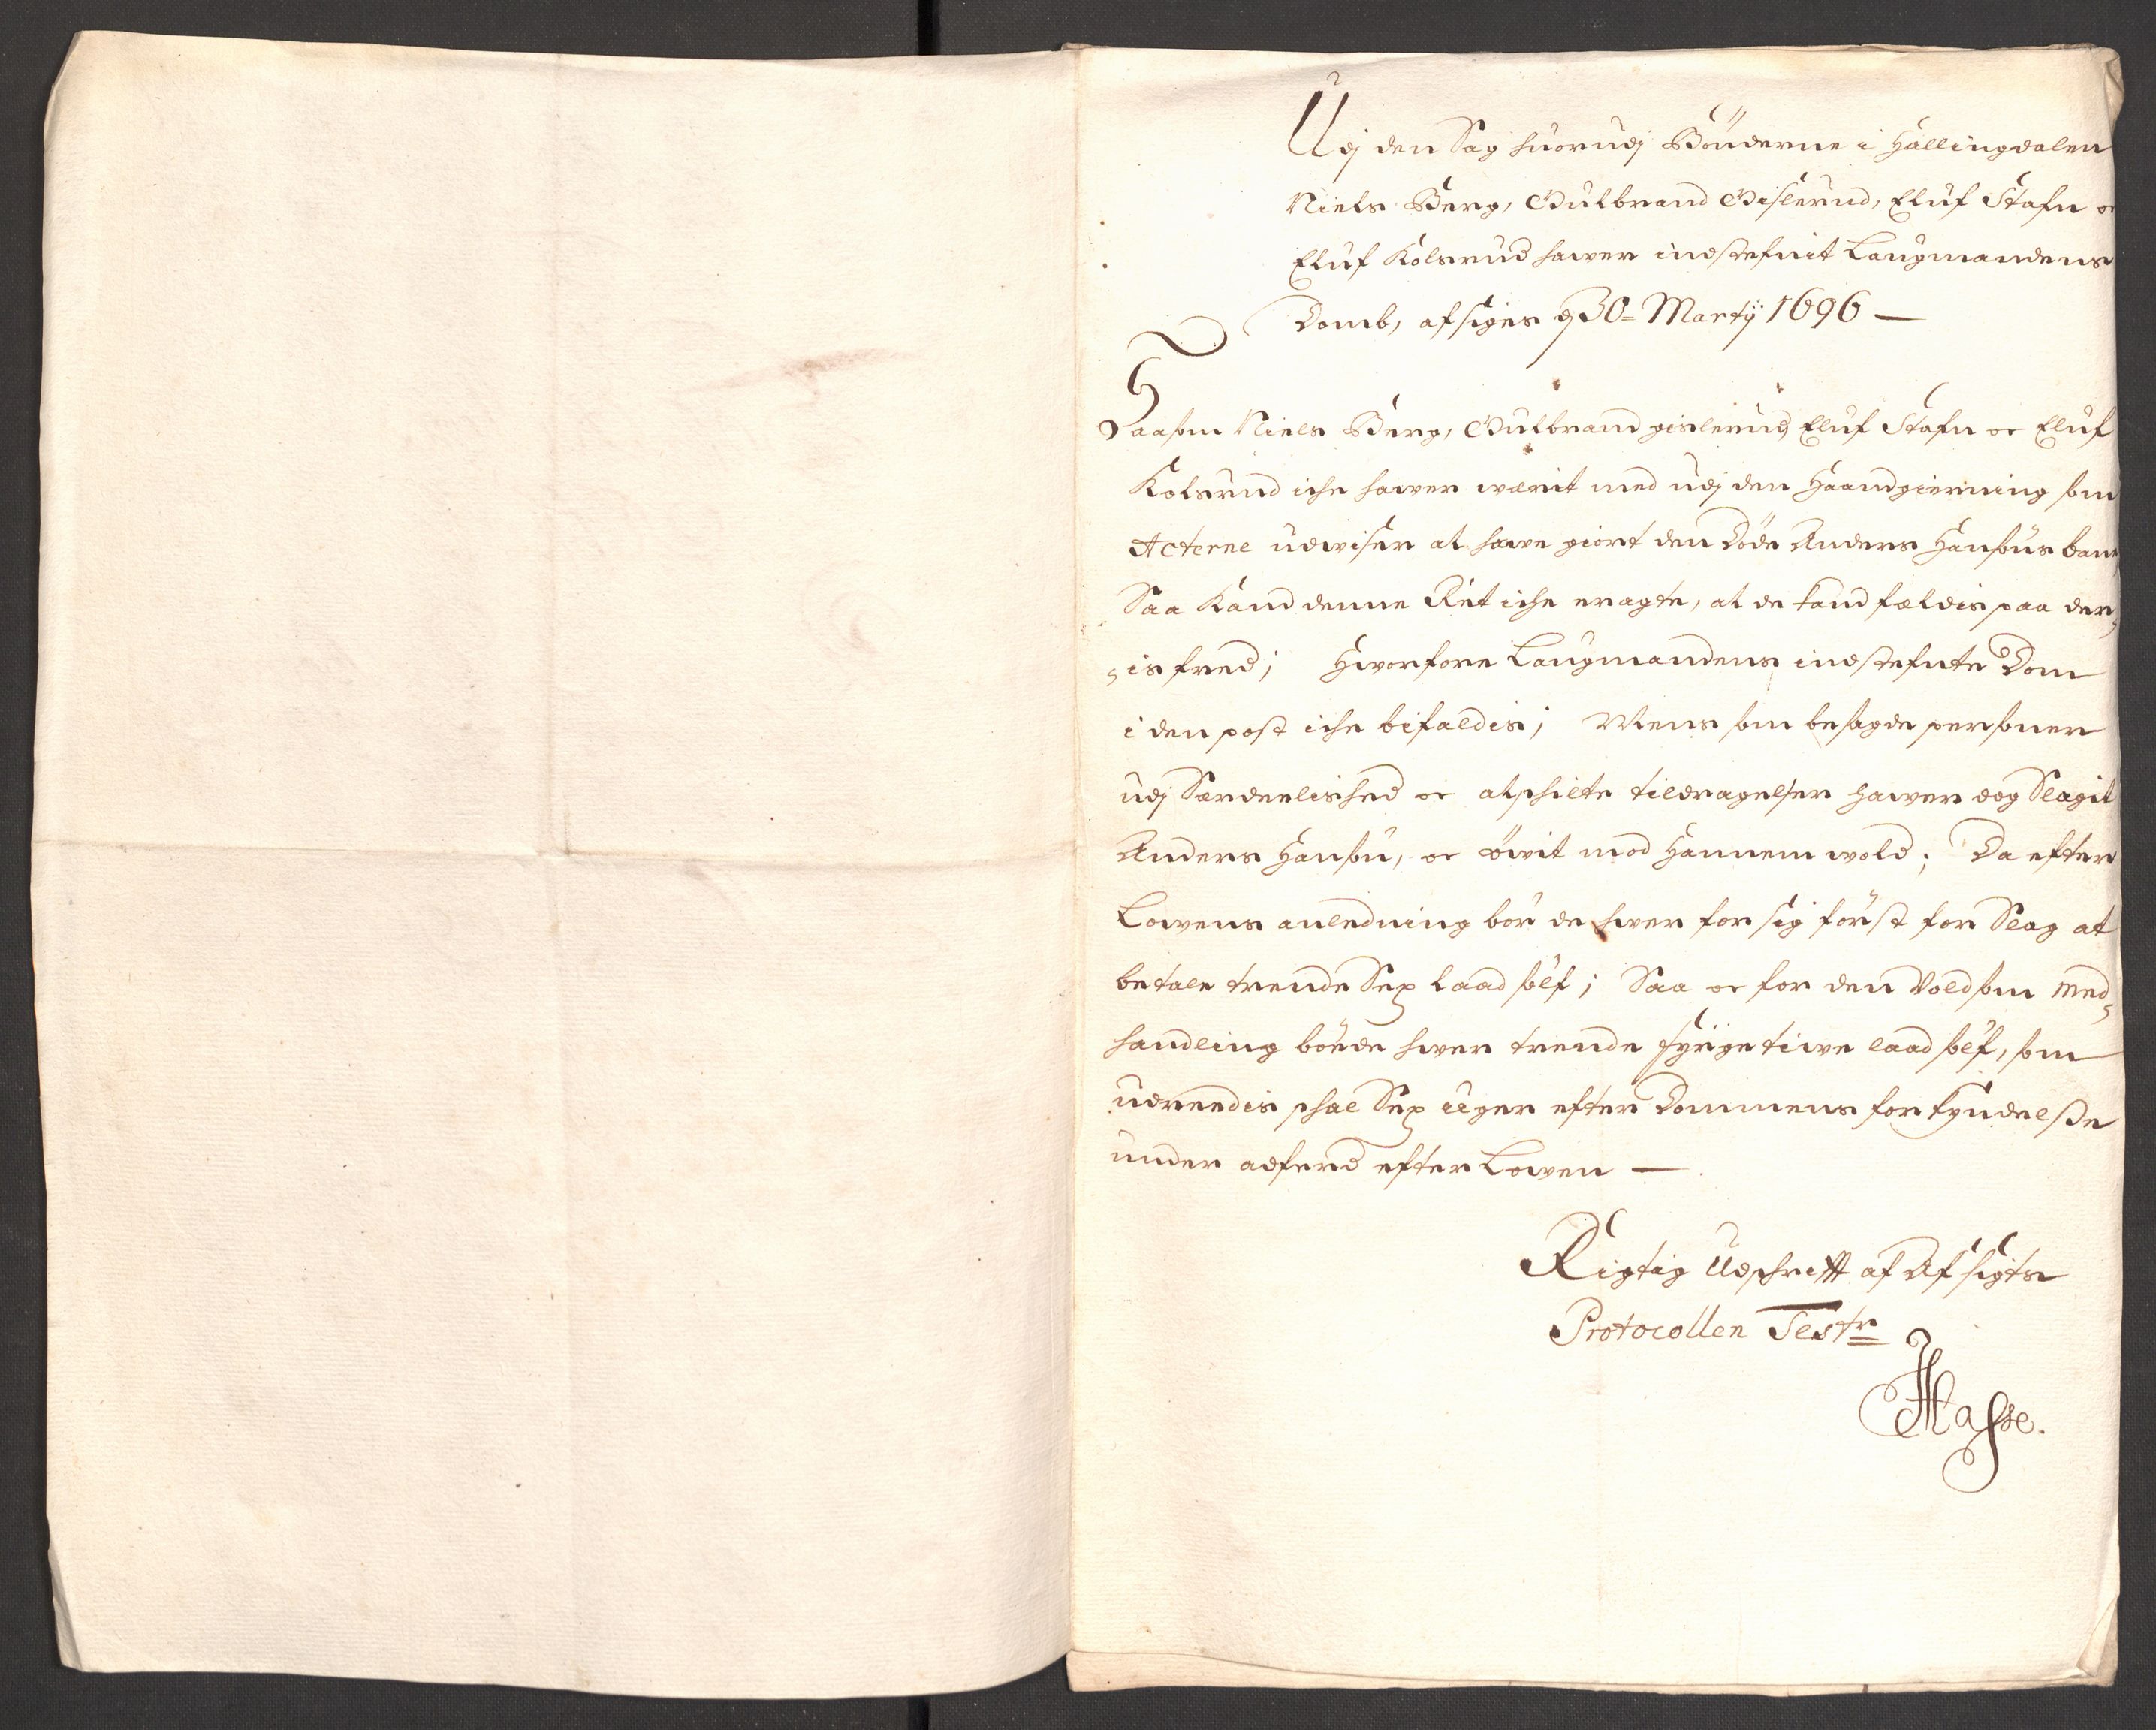 Udj den Sag huorudj Bønderne i Hallingdalen
Niels Berg, Gulbrand Gislerud, Eluf Stafn oc
Eluf Kolsrud hawer indstefnit Laugmandens
Domb, afsiges d 30= Martij 1696 —
Saasom Niels Berg, Gulbrand gislerud, Eluf Stafn oc Eluf
Kolsrud iche hawer wærit med udj den Haandgierning som
Acterne udwiser at hawe giort den døde Anders Hansøns bane,
Saa kand denne Ret iche eragte, at de kand fældis paa der,
,is fred; Hworfore Laugmandens indstefnte Dom
i den post iche bifaldis; Mens som besagde personer
udj Særdeelished oc atschilte tildragelser hawer dog Slagit
Anders Hansøn, oc øwit mod Hannem wold; Da efter
Lowens anledning bør de hwer for sig først for Slag at
betale trende Sex laad sølf; Saa oc for den Voldsom Med,
handling bøede hwer trende fyrrgetiwe laad sølf, som
udreedis schal Sex uger efter Dommens forkyndelsse
under adferd efter Lowen —
Rigtig Udschrifft af Afsigts
Protocollen Testr
Hasse.